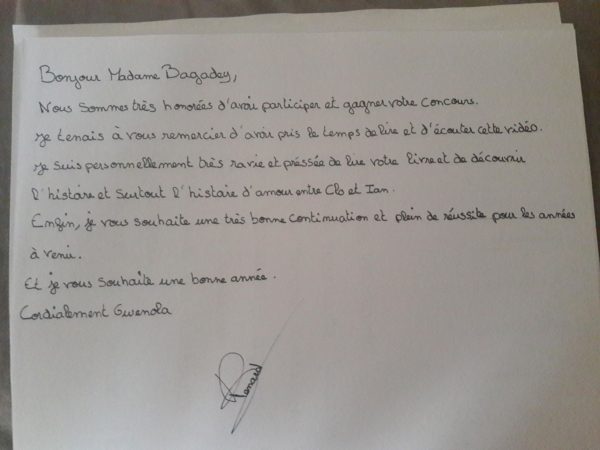 Bonjour Madame Bagadey,
Nous sommes très honorées d'avoir participer et gagner votre concours.
Je tenais à vous remercier d'avoir pris le temps de lire et d'écouter cette vidéo.
Je suis personnellement très ravie et préssée de lire votre livre et de découvrir
l'histoire et surtout l'histoire d'amour entre Clo et Ian.
Enfin, je vous souhaite une très bonne continuation et plein de réussite pour les années
à venir.
Et je vous souhaite une bonne année.
Cordialement Gwenola
Renard